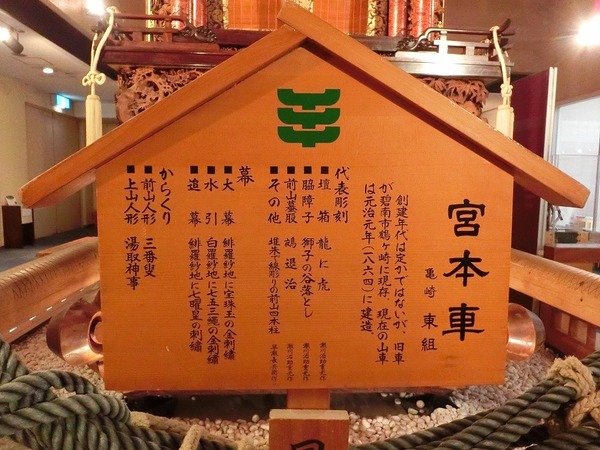 宮本車
亀崎 東組
創建年代は定かではないが、旧車
が碧南市鶴ヶ崎に現存、現在の山車
は元治元年(一八六四)に建造。
代表彫刻
■壇箱 龍に虎 瀬川治助重光作
■脇障子 獅子の谷落とし 瀬川治助重光作
■前山蟇股 鵺退治 瀬川治助重光作
■その他 堆朱千線彫りの前山四本柱 早瀬長兵衛作
幕
■大幕 緋羅紗地に宝珠玉の金刺繍
■水引 白羅紗地に七五三縄の金刺繍
■追幕 緋羅紗地に七曜星の刺繍
からくり
■前山人形 三番叟
■上山人形 湯取神事